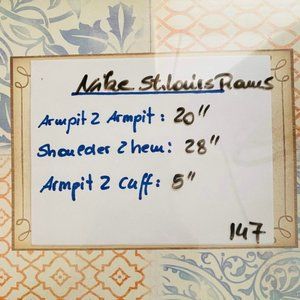 Nike St.Louis Rams
Armpit 2 Armpit: 20"
Shoulder 2 hem: 28"
Armpit 2 Cuff: 5"
147